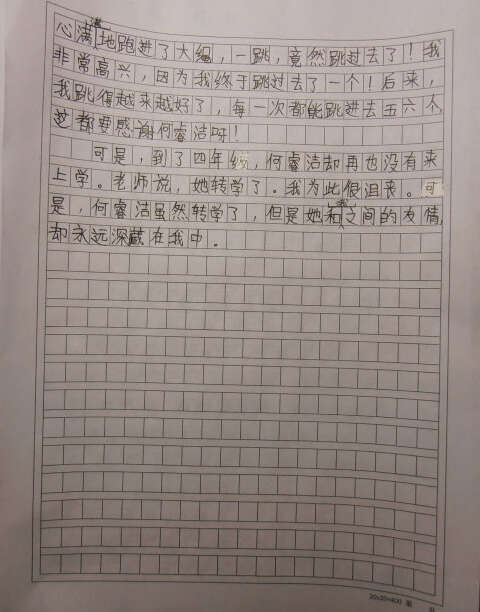 心满满地跑进了大组，一跳，竟然跳过去了！我
非常高兴，因为我终于跳过去了一个！后来，
我跳得越来越好了，每一次都能跳进去五六个，
这都要感谢何睿洁呀！
可是，到了四年级，何睿洁却再也没有来
上学。老师说，她转学了。我为此很沮丧。可
是，何睿洁虽然转学了，但是她和我之间的友情，
却永远深藏在我中。
20×20=400